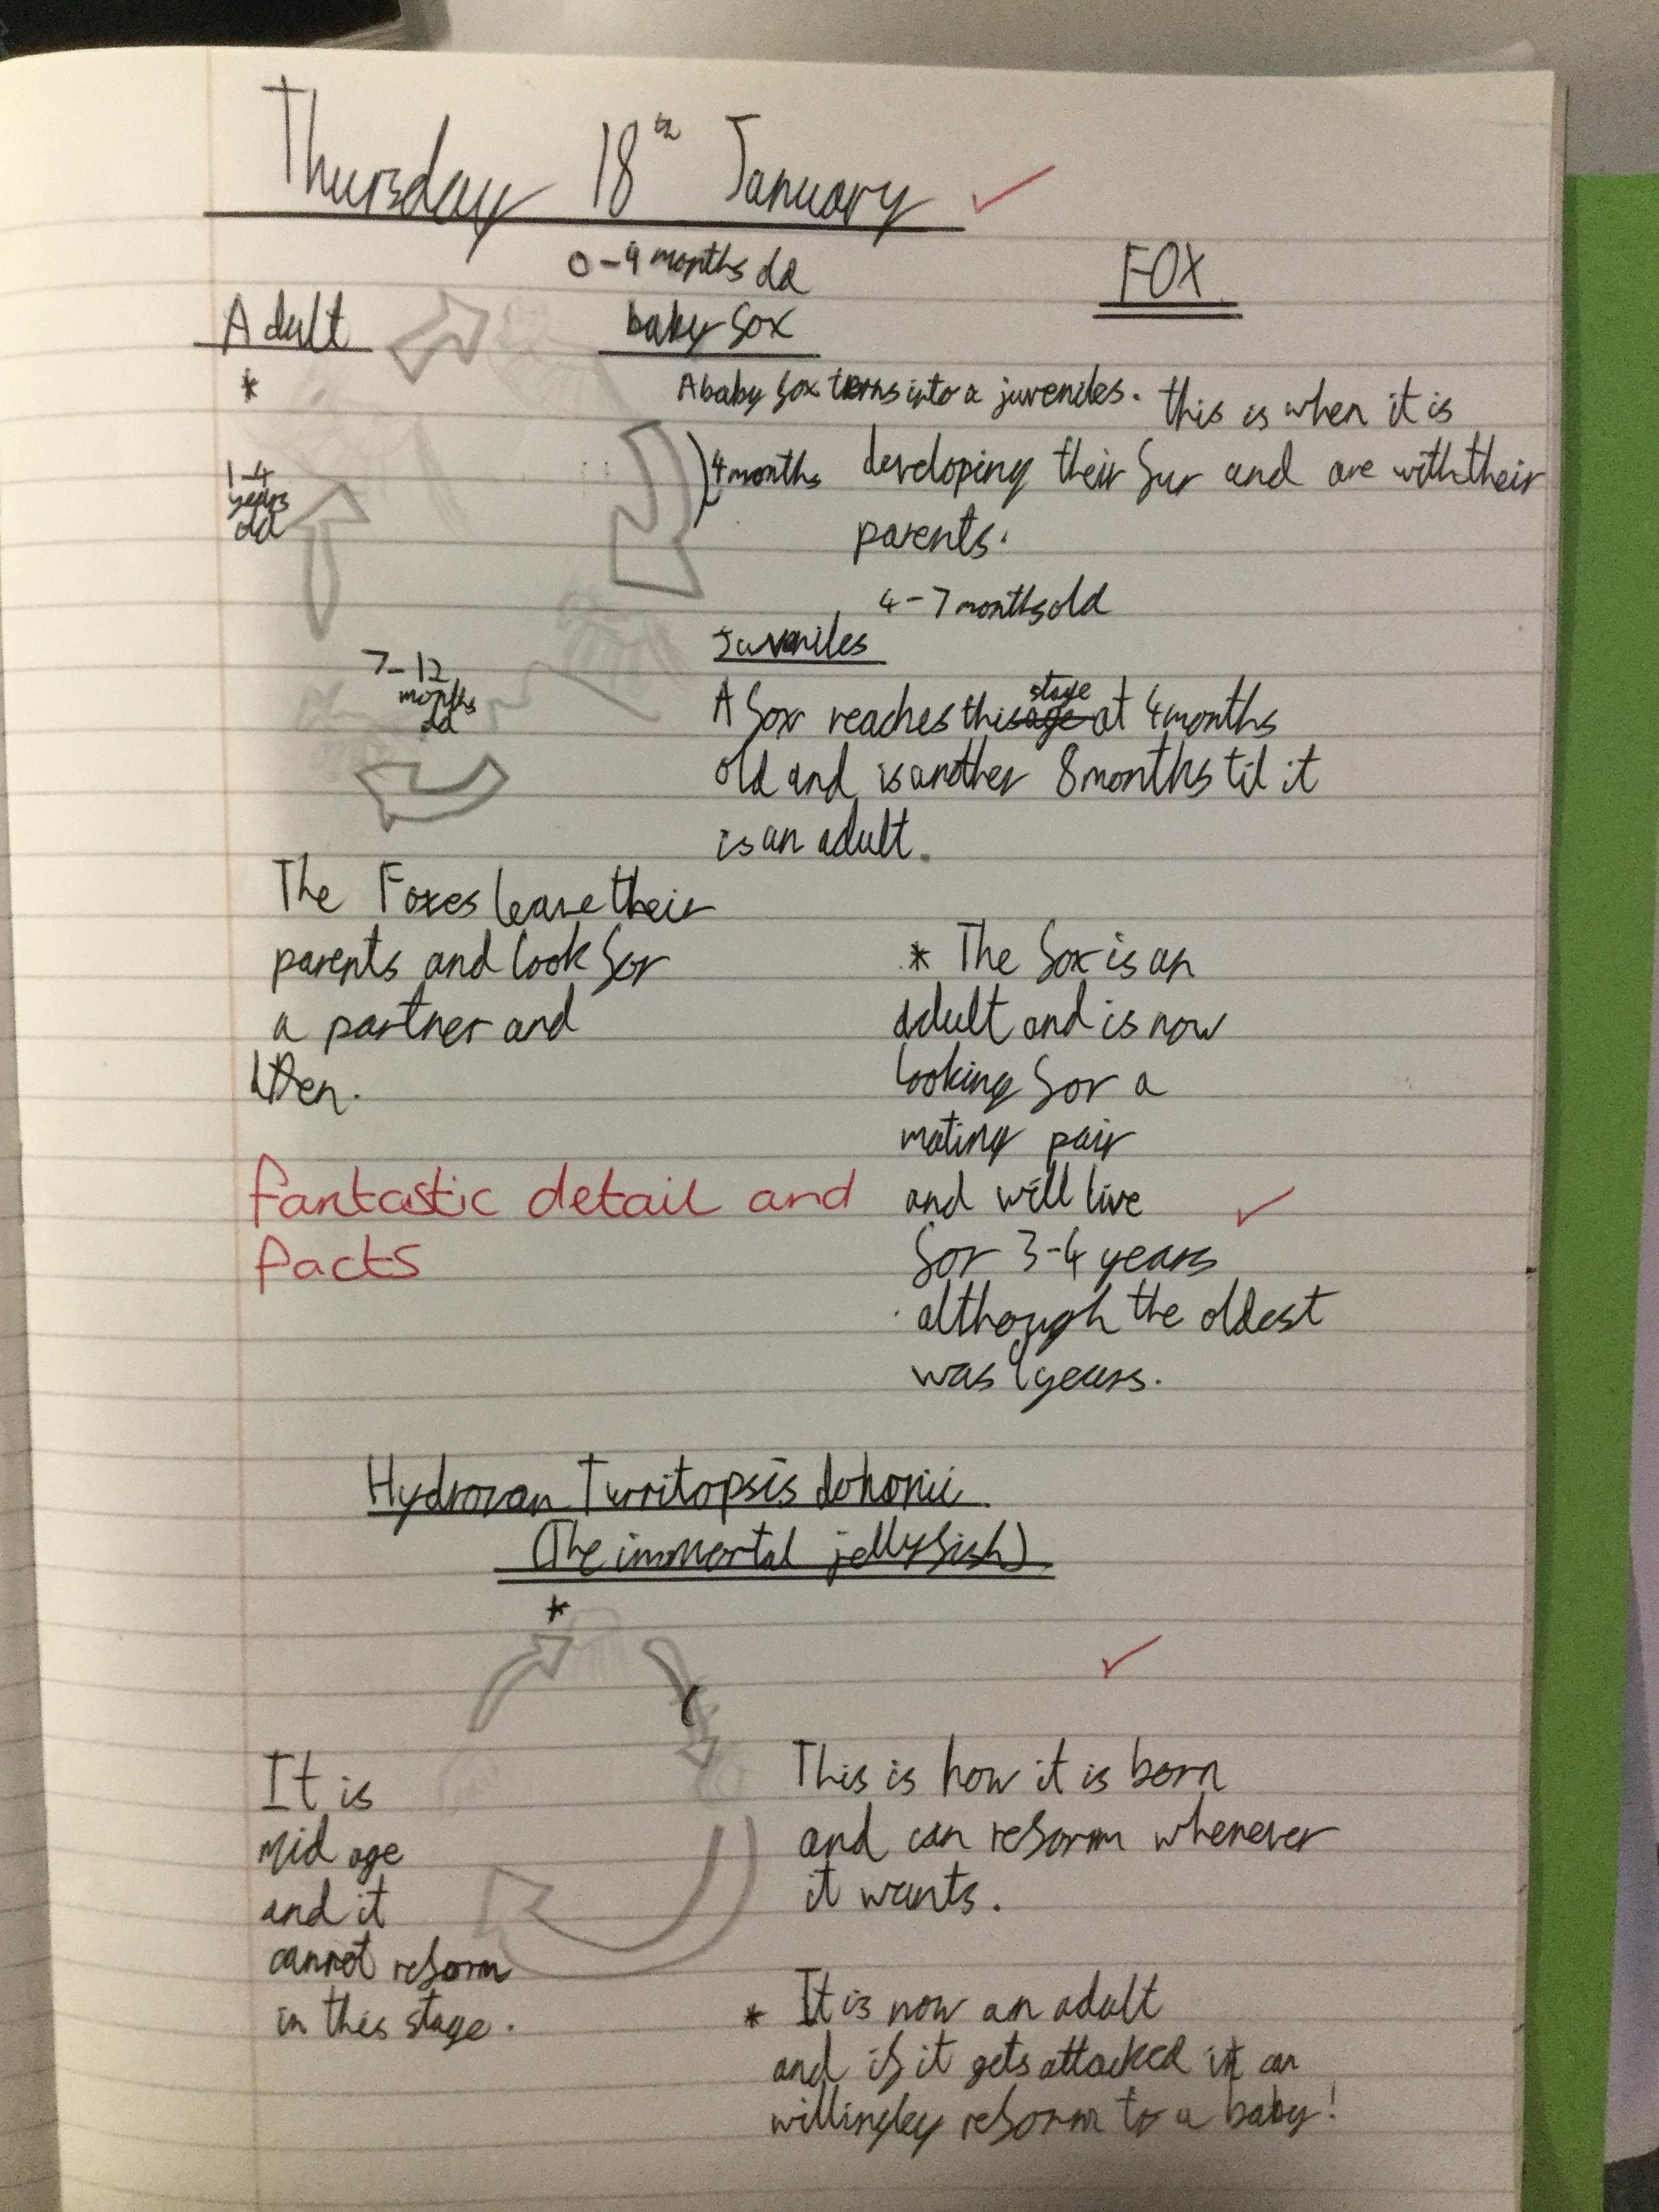 Thursday 18th January
FOX
0-4 months old
baby fox
Adult
*
1-4
years
old
A baby fox terns into a juveniles. this is when it is
4 months developing their fur and are with their
parents.
4-7 months old
Juveniles
A fox reaches this age stage at 4 months
old and is another 8 months til it
is an adult.
7-12
months
old
The Foxes leave their
parents and look for
a partner and
den.
* The fox is an
adult and is now
looking for a
mating pair
and will live
for 3-4 years
although the oldest
was 9 years.
fantastic detail and
facts
Hydrozan Turritopsis dohornii
(The immortal jellyfish)
*
This is how it is born
and can reform whenever
it wants.
It is
mid age
and it
cannot reform
in this stage.
* It is now an adult
and if it gets attacked it can
willingley reform to a baby!